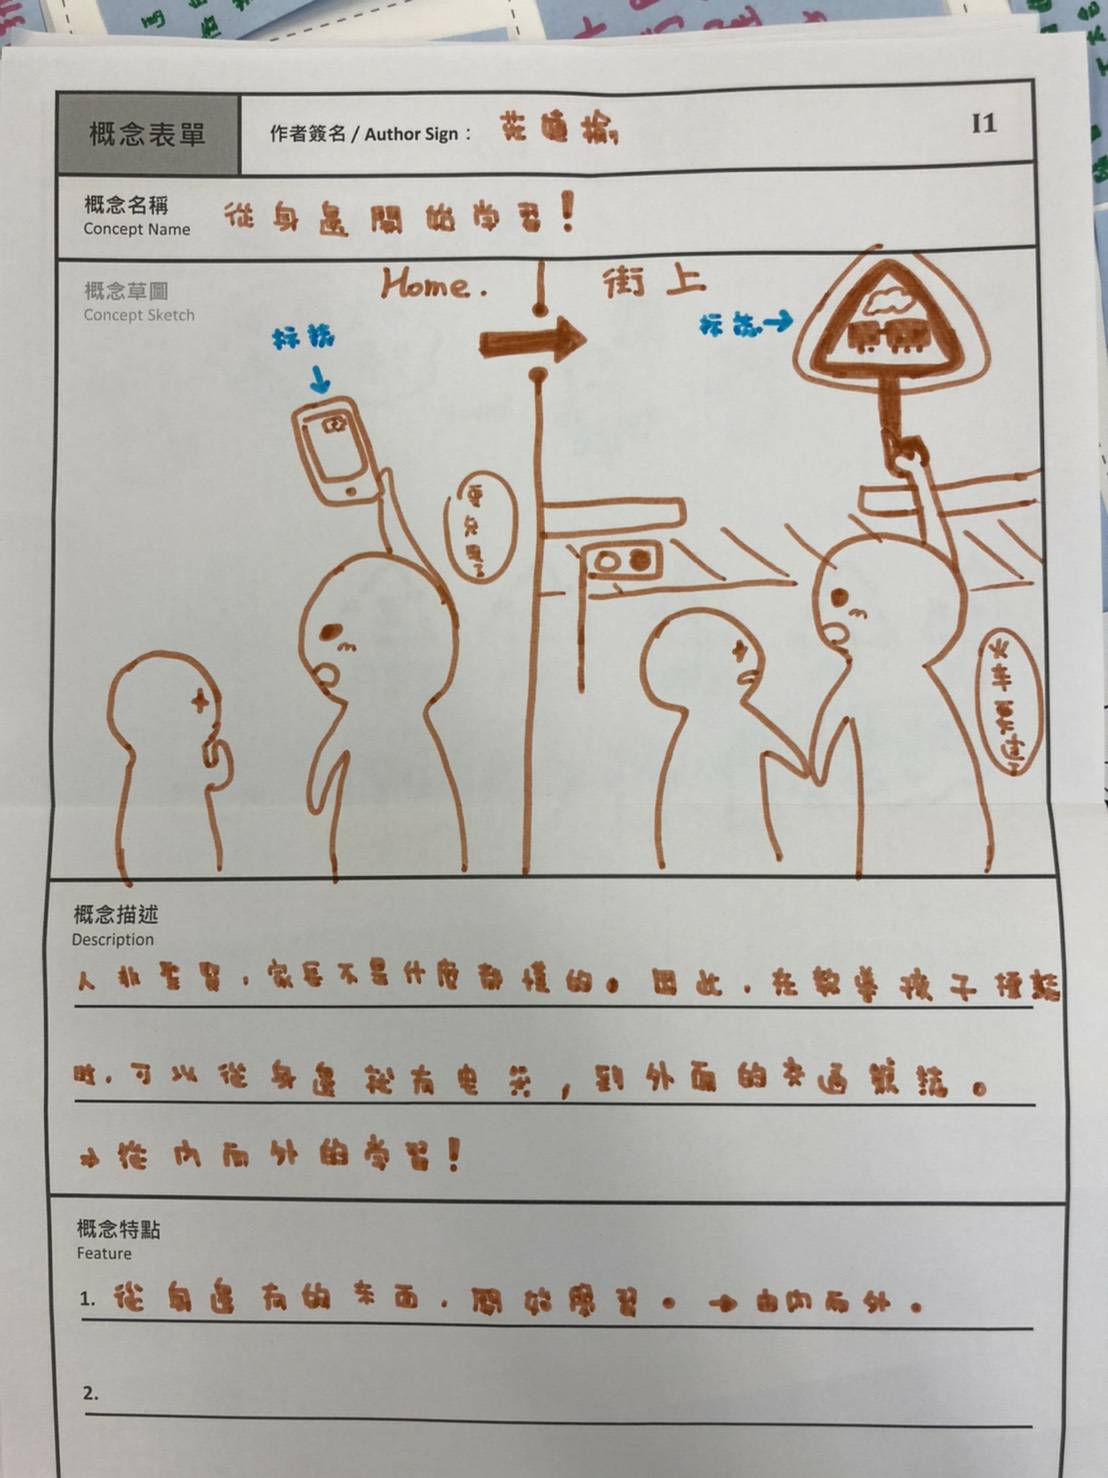 概念表單
作者簽名 / Author Sign：
I1
概念名稱
Concept Name
從身邊開始學習！
概念草圖
Concept Sketch
Home.
街上
标誌
标誌→
要充電了
火車要過了
概念描述
Description
人非聖賢，家長不是什麼都懂的。因此，在教導孩子標誌
時，可以從身邊就有
，到外面的交通號誌。
→從內而外的学習！
概念特點
Feature
1. 從身邊有的東西，開始學習。→由內而外。
2.